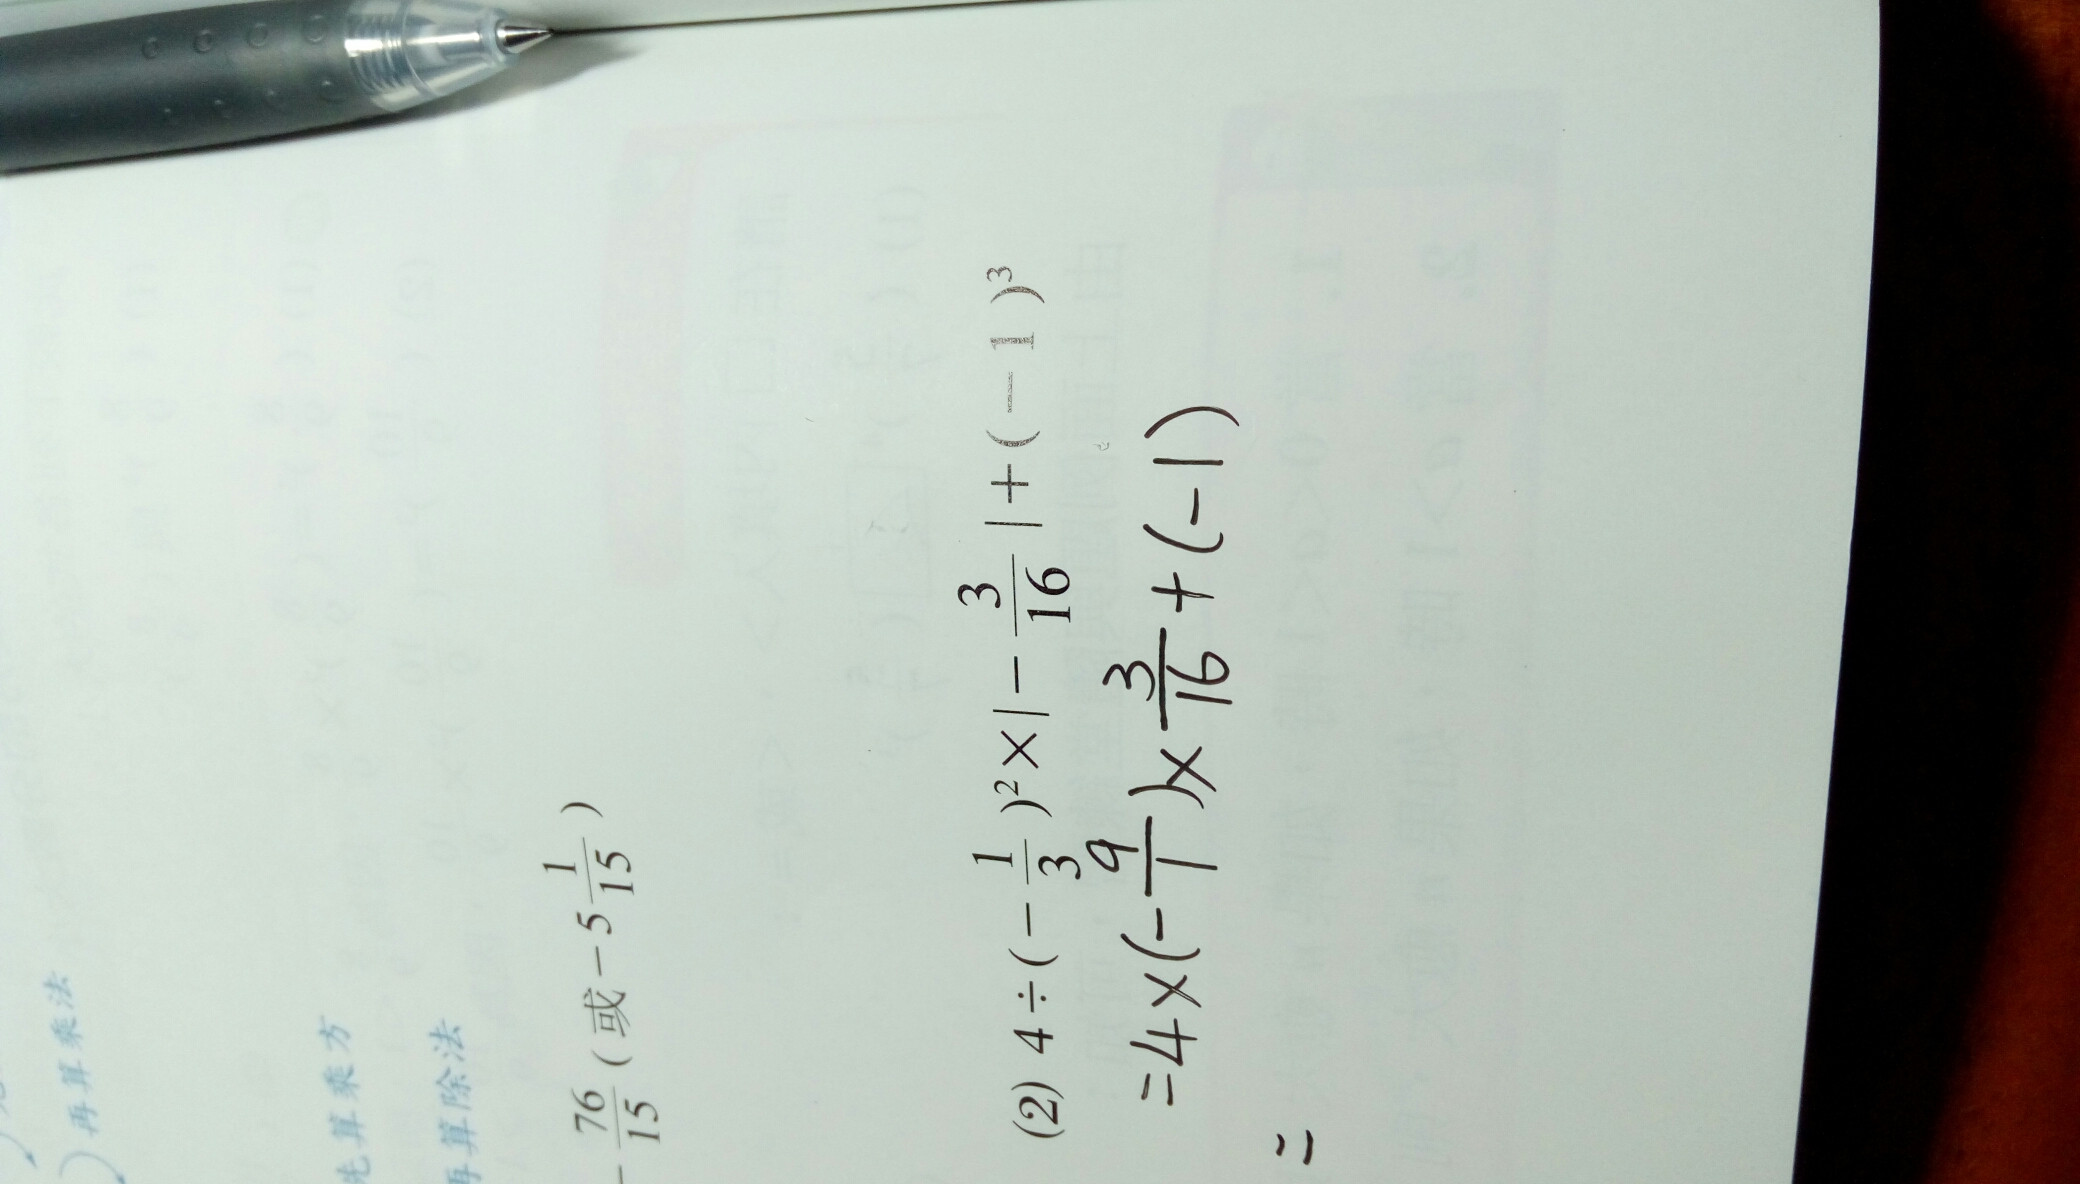 再算乘法
先算乘方
再算除法
-76/15(或-5 1/15)
(2) 4÷(-1/3)²×|-3/16|+(-1)³
=4×(-9/1)×3/16+(-1)
=